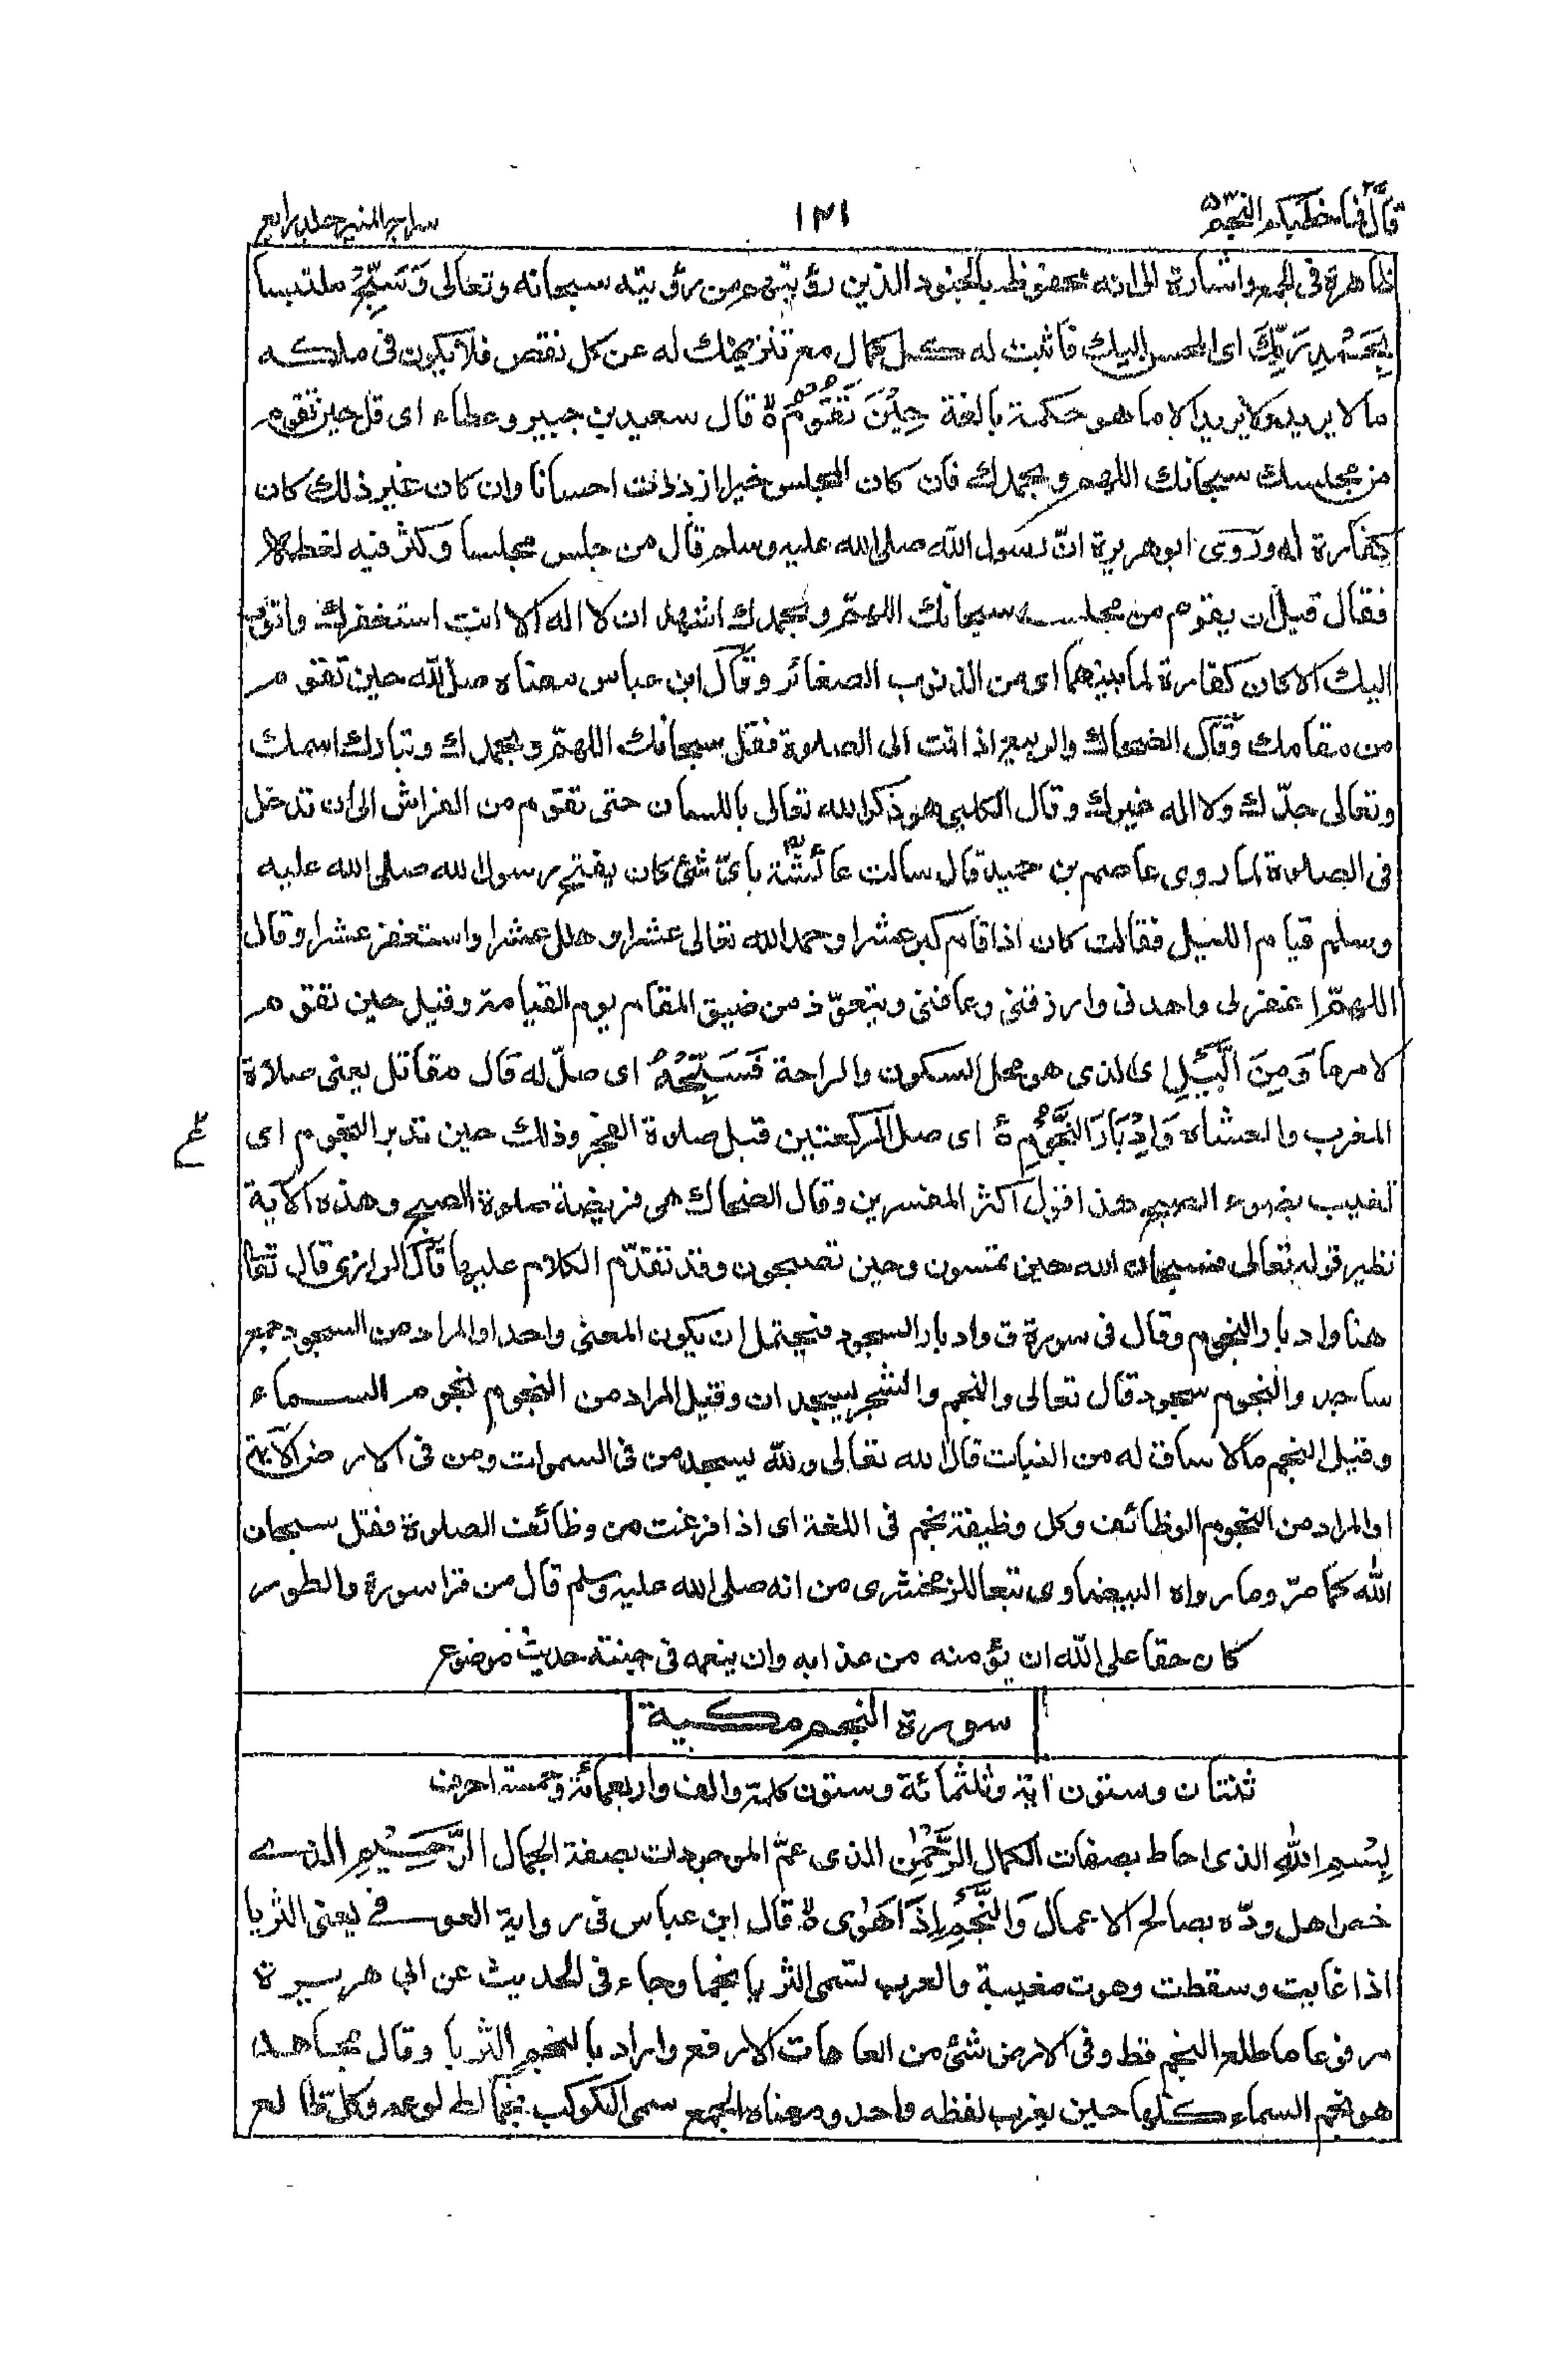 قال فما خطبكم النجم ۵۳
١٢١
سراج المنير جلد رابع
ظاهرة فى الجمع واشارة الى انه محفوظ بالجنود الذين رؤيتهم من رؤيته سبحانه وتعالى وَسَبِّحْ ملتبسا
بِحَمْدِ رَبِّكَ اى المحسن اليك فاثبت له كل كمال مع تنزيهك له عن كل نقص فلا يكون فى ملكه
ما لا يريد ولا يريد الا ما هو حكمة بالغة حِيْنَ تَقُوْمُ ۙ قال سعيد بن جبير وعطاء اى قل حين تقوم
من مجلسك سبحانك اللهم وبحمدك فان كان المجلس خيرا ازددت احسانا وان كان غير ذلك كان
كفارة له وروى ابوهريرة انّ رسول الله صلى الله عليه وسلم قال من جلس مجلسا وكثر فيه لغطه
فقال قبل ان يقوم من مجلسه سبحانك اللهمّ وبحمدك اشهد ان لا اله الا انت استغفرك واتوب
اليك الا كان كفارة لما بينهما اى من الذنوب الصغائر وقال ابن عباس معناه صل لله حين تقوم
من مقامك وقال الضحاك والربيع اذا قمت الى الصلوة فقل سبحانك اللهمّ وبحمدك وتبارك اسمك
وتعالى جدّك ولا اله غيرك وقال الكلبى هو ذكر الله تعالى باللسان حتى تقوم من الفراش الى ان تدخل
فى الصلوة لما روى عاصم بن حميد قال سالت عائشة باىّ شئ كان يفتح رسول الله صلى الله عليه
وسلم قيام الليل فقالت كان اذا قام كبر عشرا وحمد الله تعالى عشرا وهلل عشرا واستغفر عشرا وقال
اللهمّ اغفر لى واهدنى وارزقنى وعافنى ويتعوّذ من ضيق المقام يوم القيامة وقيل حين تقوم
لامر ما وَمِنَ الَّيْلِ اى الذى هو محل السكون والراحة فَسَبِّحْهُ اى صلّ له قال مقاتل يعنى صلاة
المغرب والعشاء وَاِدْبَارَ النُّجُوْمِ ۧ اى صل الركعتين قبل صلوة الفجر وذلك حين تدبر النجوم اى
ع
تغيب بضوء الصبح هذا قول اكثر المفسرين وقال الضحاك هى فريضة صلوة الصبح وهذه الآية
نظير قوله تعالى فسبحان الله حين تمسون وحين تصبحون وقد تقدّم الكلام عليها قال الرازى قال تعا
هنا وادبار النجوم وقال فى سورة ق وادبار السجود فيحتمل ان يكون المعنى واحدا والمراد من السجود جمع
ساجد والنجوم سجود قال تعالى والنجم والشجر يسجدان وقيل المراد من النجوم نجوم السماء
وقيل النجم ما لا ساق له من النبات قال الله تعالى ولله يسجد من فى السموات ومن فى الارض الآية
او المراد من النجوم الوظائف وكل وظيفة نجم فى اللغة اى اذا فرغت من وظائف الصلوة فقل سبحان
الله كما مرّ وما رواه البيضاوى تبعا للزمخشرى من انه صلى الله عليه وسلم قال من قرا سورة والطور
كان حقا على الله ان يؤمنه من عذابه وان ينعمه فى جنته حديث موضوع
سورة النجم مكية
ثنتان وستون آية وثلثمائة وستون كلمة والف واربعمائة وخمسة احرف
بِسْمِ اللهِ الذى احاط بصفات الكمال الرَّحْمٰنِ الذى عمّ الموجودات بصفة الجمال الرَّحِيْمِ الذى
خص اهل ودّه بصالح الاعمال وَالنَّجْمِ اِذَا هَوٰى ۙ قال ابن عباس فى رواية العوفى يعنى الثريا
اذا غابت وسقطت وهوت مغيبة والعرب تسمى الثريا نجما وجاء فى الحديث عن ابى هريرة
مرفوعا ما طلع النجم قط وفى الارض شئ من العاهات الا رفع واراد بالنجم الثريا وقال مجاهد
هو نجم السماء كلها حين يغرب لفظه واحد ومعناه الجمع سمى الكوكب نجما لطلوعه وكل طالع